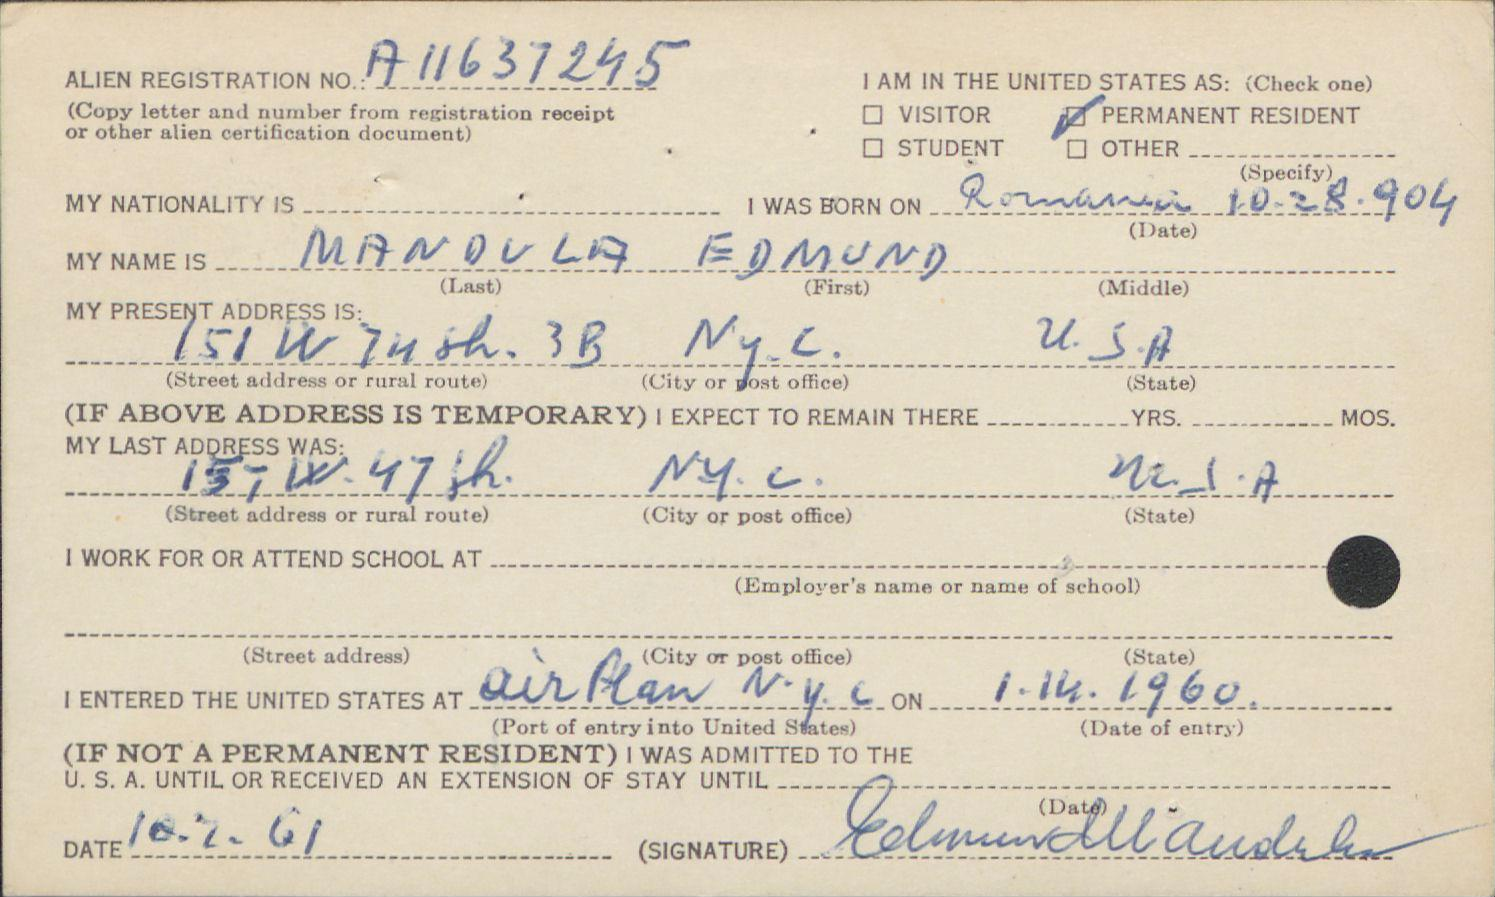 ALIEN REGISTRATION NO.: A11637245
(Copy letter and number from registration receipt
or other alien certification document)
I AM IN THE UNITED STATES AS: (Check one)
☐ VISITOR ☑ PERMANENT RESIDENT
☐ STUDENT ☐ OTHER
(Specify)
MY NATIONALITY IS I WAS BORN ON Romania 10-28.904
(Date)
MY NAME IS MANDULA EDMUND
(Last) (First) (Middle)
MY PRESENT ADDRESS IS:
151 W 74 3B Ny.C. U.S.A
(Street address or rural route) (City or post office) (State)
(IF ABOVE ADDRESS IS TEMPORARY) I EXPECT TO REMAIN THERE YRS. MOS.
MY LAST ADDRESS WAS:
157 W. 47 NY.C. U.S.A
(Street address or rural route) (City or post office) (State)
I WORK FOR OR ATTEND SCHOOL AT
(Employer's name or name of school)
(Street address) (City or post office) (State)
I ENTERED THE UNITED STATES AT airPlan N.y.C ON 1.14.1960.
(Port of entry into United States) (Date of entry)
(IF NOT A PERMANENT RESIDENT) I WAS ADMITTED TO THE
U. S. A. UNTIL OR RECEIVED AN EXTENSION OF STAY UNTIL
(Date)
DATE 61 (SIGNATURE) Edmund Mandula